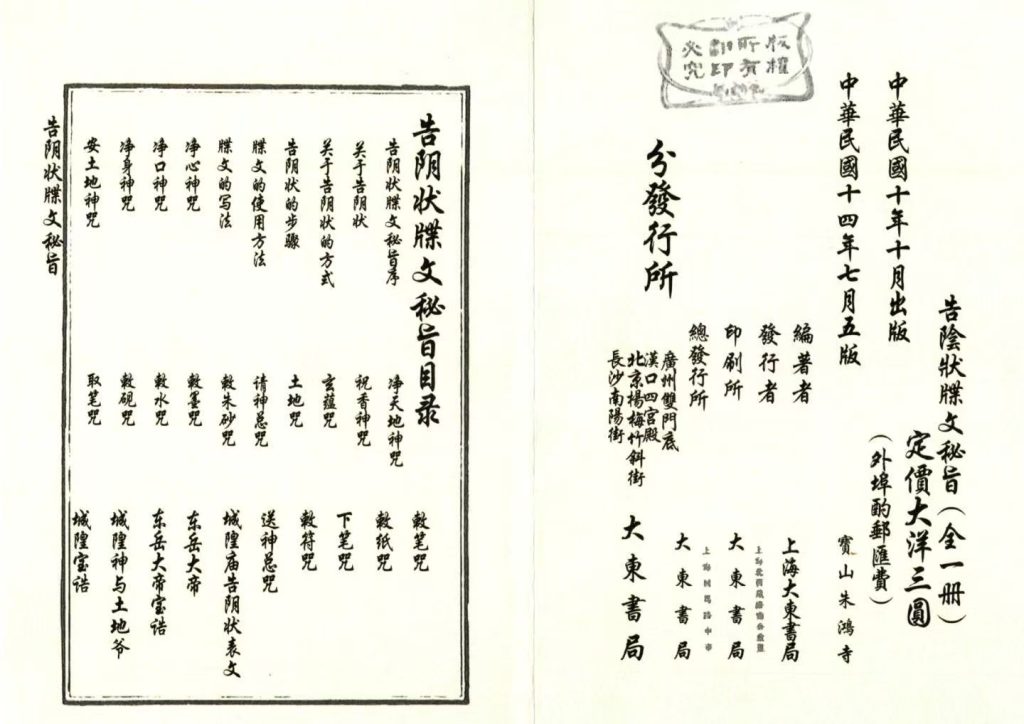 版權
所有
翻印
必究
告陰狀牒文秘旨（全一册）
定價大洋三圓
（外埠酌郵匯費）
中華民國十年十月出版
中華民國十四年七月五版
編著者 寶山朱鴻寺
發行者 上海大東書局
印刷所 大東書局
總發行所 大東書局
分發行所
廣州雙門底
漢口四宮殿
北京楊梅竹斜街
長沙南陽街
大東書局
告阴状牒文秘旨目录
告阴状牒文秘旨序
关于告阴状
关于告阴状的方式
告阴状的步骤
牒文的使用方法
牒文的写法
净心神咒
净口神咒
净身神咒
安土地神咒
净天地神咒
祝香神咒
玄蕴咒
土地咒
请神总咒
敕朱砂咒
敕墨咒
敕水咒
敕砚咒
取笔咒
敕笔咒
敕纸咒
下笔咒
敕符咒
送神总咒
城隍庙告阴状表文
东岳大帝
东岳大帝宝诰
城隍神与土地爷
城隍宝诰
告阴状牒文秘旨